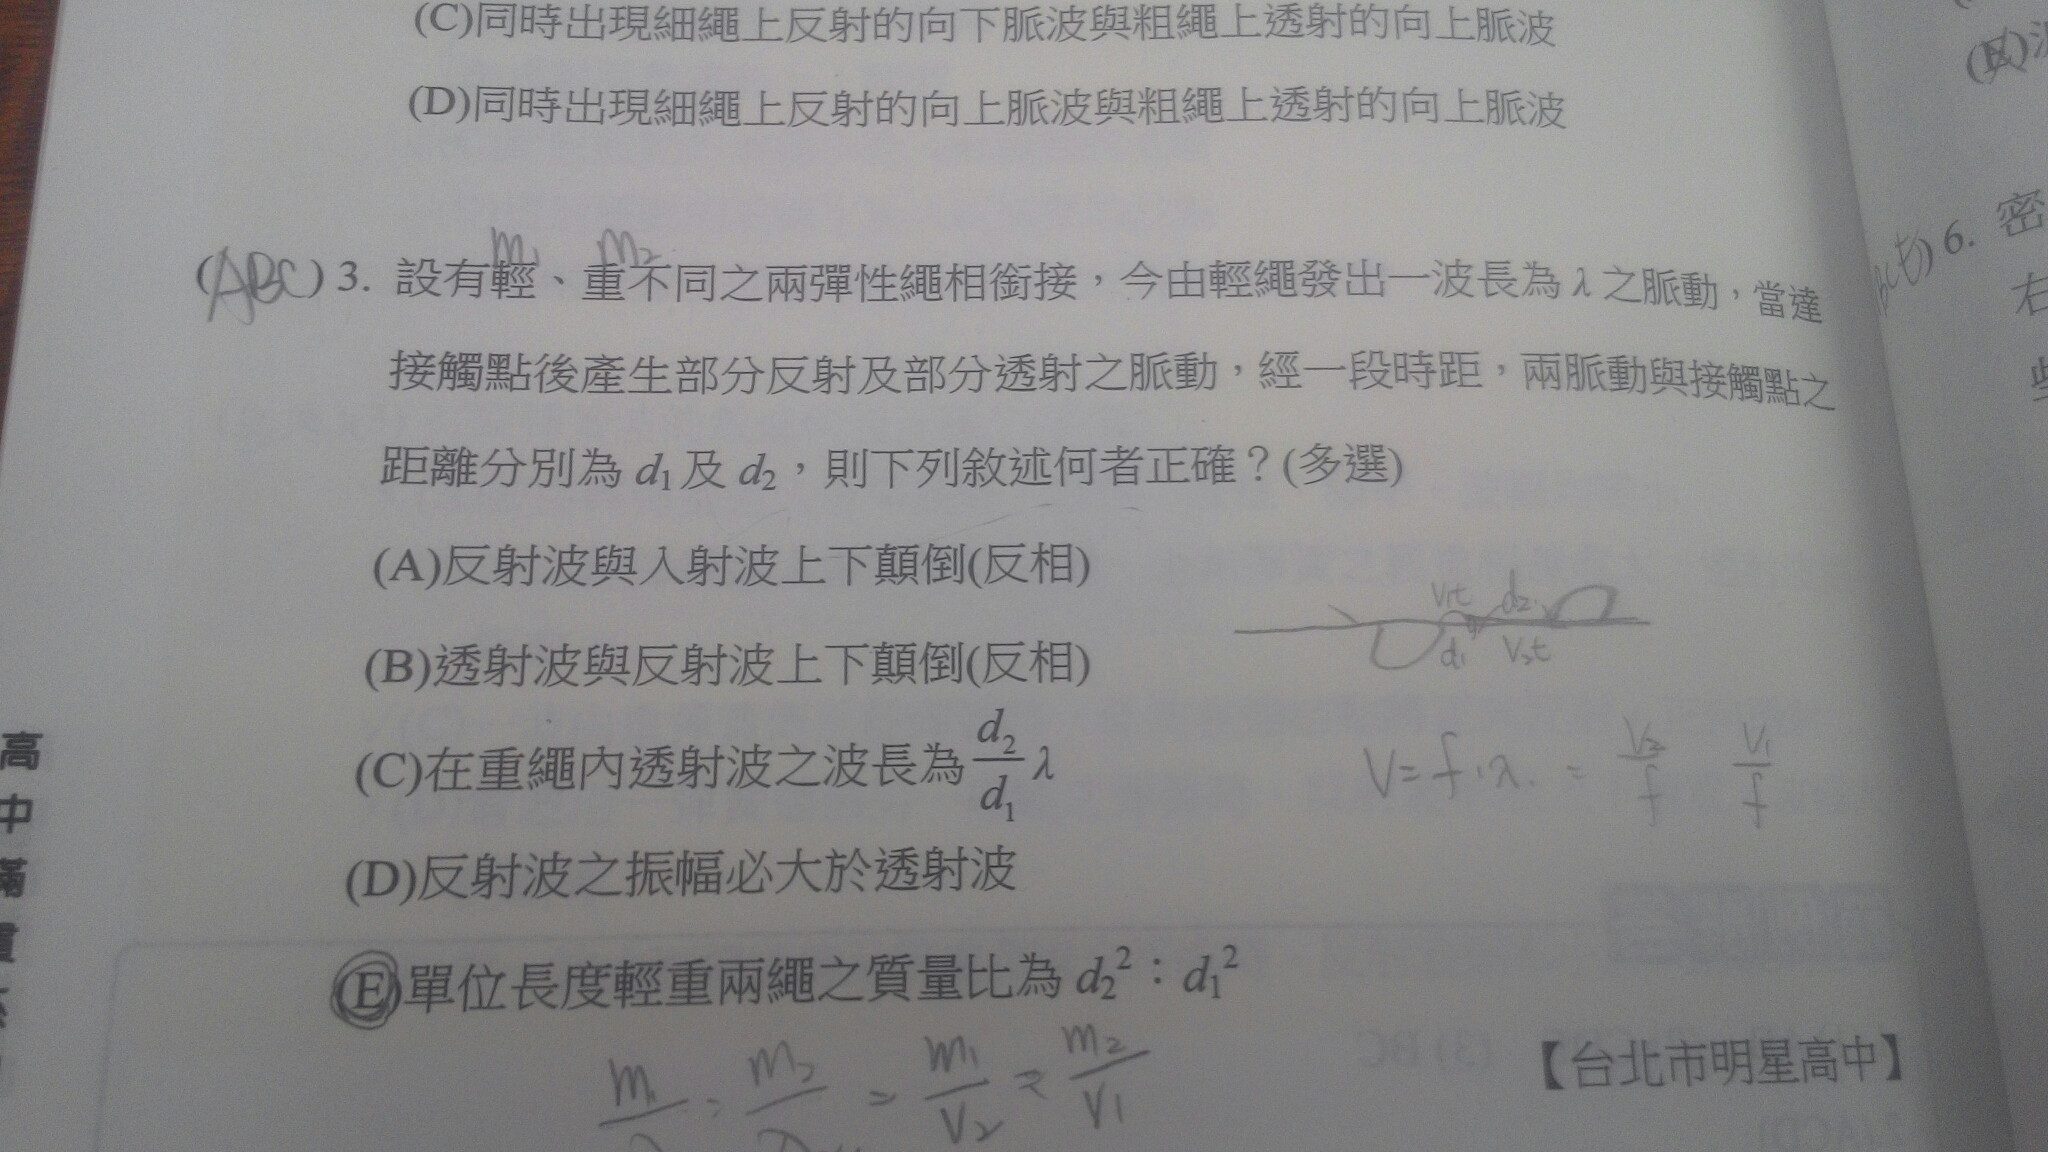 (C)同時出現細繩上反射的向下脈波與粗繩上透射的向上脈波
(D)同時出現細繩上反射的向上脈波與粗繩上透射的向上脈波
m₁ m₂
(ABC) 3. 設有輕、重不同之兩彈性繩相銜接，今由輕繩發出一波長為 λ 之脈動，當達
接觸點後產生部分反射及部分透射之脈動，經一段時距，兩脈動與接觸點之
距離分別為 d₁ 及 d₂，則下列敘述何者正確？(多選)
(A)反射波與入射波上下顛倒(反相)
(B)透射波與反射波上下顛倒(反相)
V₁t d₂
d₁ V₂t
(C)在重繩內透射波之波長為 d₂/d₁ λ
V = f · λ. = V₂/f V₁/f
(D)反射波之振幅必大於透射波
(E)單位長度輕重兩繩之質量比為 d₂²：d₁²
m₁ : m₂ = m₁/V₂ = m₂/V₁
【台北市明星高中】
6. 密
右
高
中
滿
貫